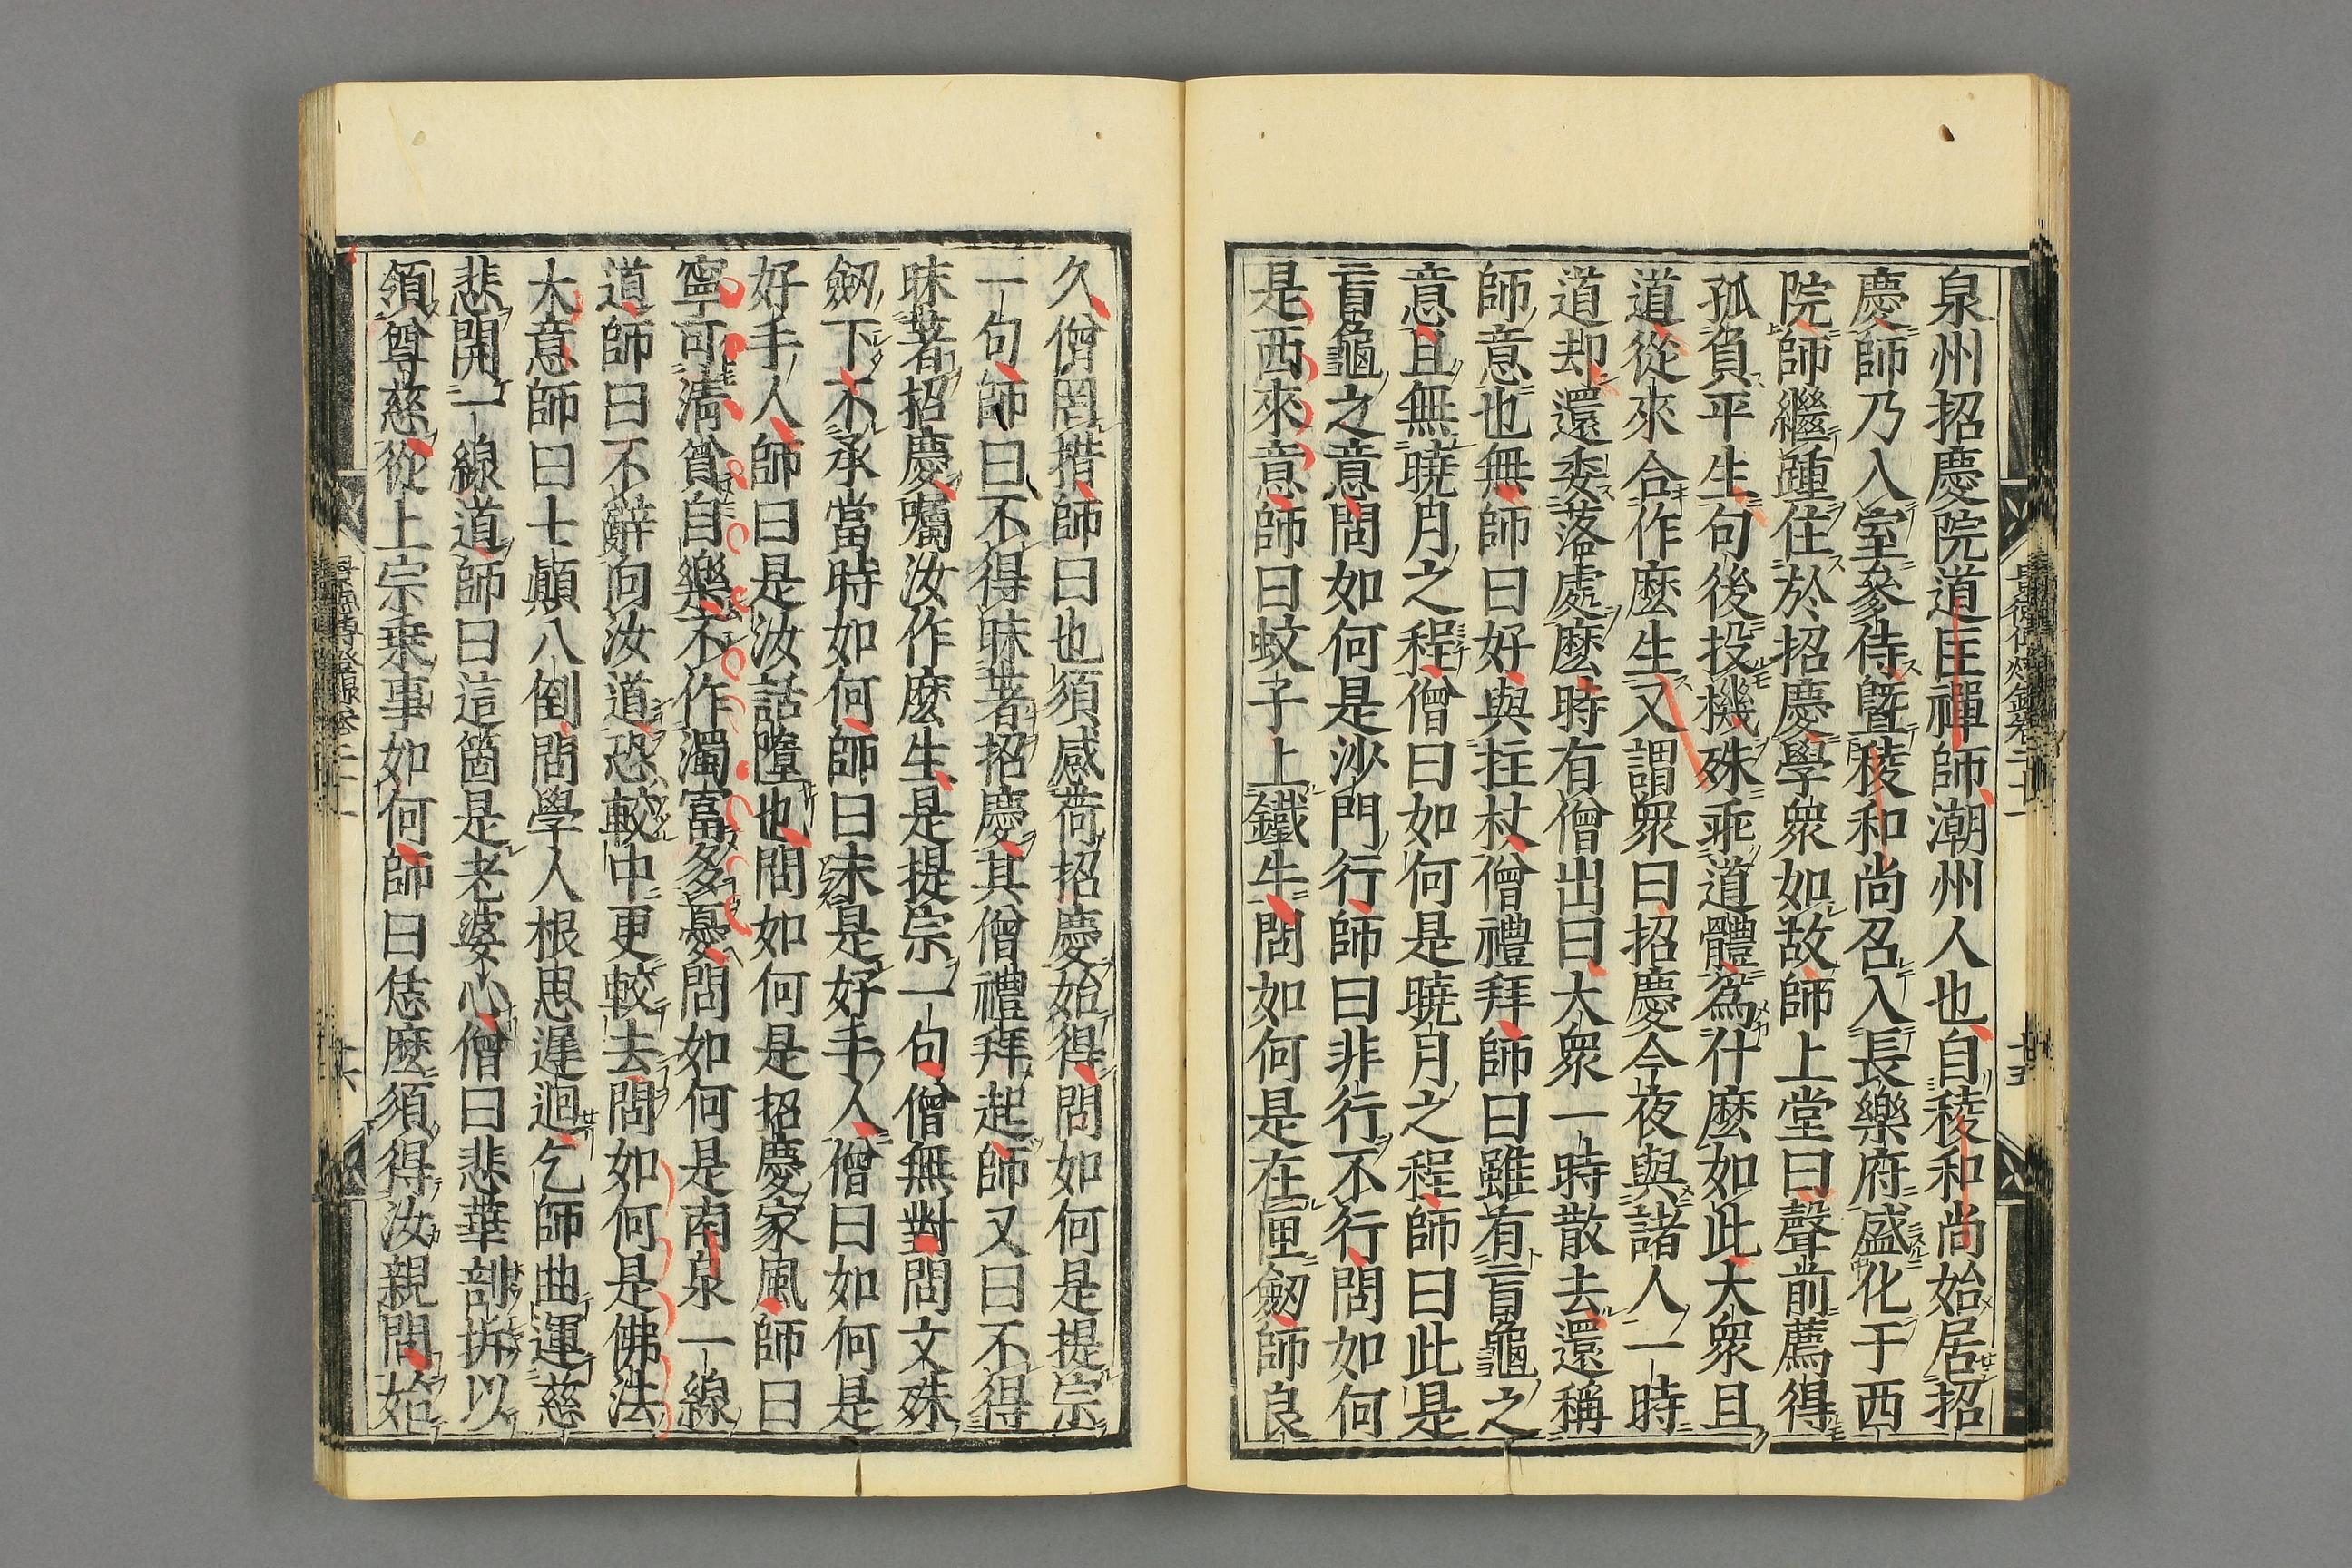 泉州招慶院道匡禪師潮州人也自稜和尚始居招
慶師乃入室參侍曁稜和尚召入長樂府盛化于西
院師繼踵住於招慶學衆如故師上堂曰聲前薦得
孤負平生句後投機殊乖道體爲什麼如此大衆且
道從來合作麼生又謂衆曰招慶今夜與諸人一時
道却還委落處麼時有僧出曰大衆一時散去還稱
師意也無師曰好與拄杖僧禮拜師曰雖有盲龜之
意且無曉月之程僧曰如何是曉月之程師曰此是
盲龜之意問如何是沙門行師曰非行不行問如何
是西來意師曰蚊子上鐵牛問如何是在匣劒師良
久僧罔措師曰也須感荷招慶始得問如何是提宗
一句師曰不得昧著招慶其僧禮拜起師又曰不得
昧著招慶囑汝作麼生是提宗一句僧無對問文殊
劒下不承當時如何師曰未是好手人僧曰如何是
好手人師曰是汝話墮也問如何是招慶家風師曰
寧可淸貧自樂不作濁富多憂問如何是南泉一線
道師曰不辭向汝道恐較中更較去問如何是佛法
大意師曰七顚八倒問學人根思遲迴乞師曲運慈
悲開一線道師曰這箇是老婆心僧曰悲華剖拆以
領尊慈從上宗乘事如何師曰恁麼須得汝親問始